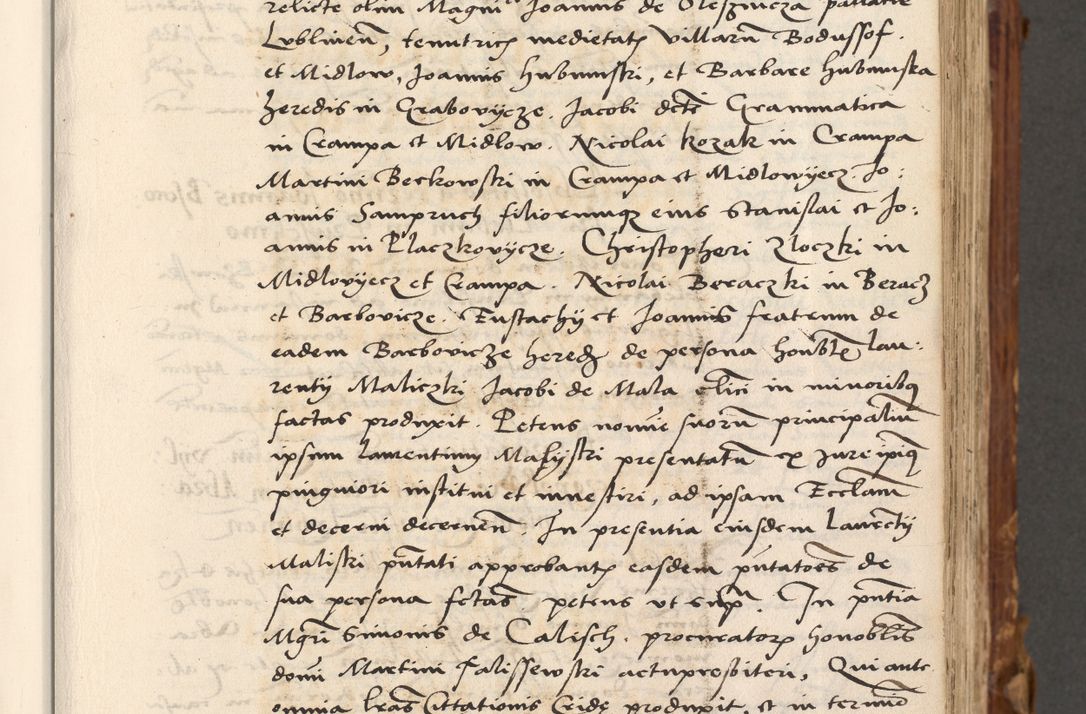 relicte olim Magnici Joannis de Olesznicza pallatie
Lublineñ, tenutrici medietatis villarũ Bodussof.
et Midlow, Joannis Hubmuski, et Barbare hubmuska
heredis in Grabovijcze. Jacobi dcte Grammatica
in Crampa et Midlow. Nicolai kozak in Crampa
Martini Beckowski in Crampa et Midlowijecz. Jo:
annis Sampruch filiorumq eius Stanislai et Jo:
annis in Placzkovijcze. Christopheri Zloczki in
Midlovijecz et Crampa. Nicolai Beraczki in Beracz
et Barbovicze. Eustachij et Joannis fratrum de
eadem Barbovicze hered de persona honble Lau:
rentij Maliczki Jacobi de Mala clici in minoribq
factas produxit. Petens noïe suorũ principaliũ
ipsum Laurentium Malijski presentatũ ex Jure ipiq
pinguiori institui et investiri, ad ipsam Eccłam
et decerni decerneñ. In presentia eiusdem Laurẽtij
Maliski pñtati approbantis easdem pñtatoẽs de
sua persona fctas petens ut supra. In pñtia
Mgri Simonis de Calisch. procuratoris honoblis
domi Martini Falissewski actupresbiteri, Qui ante
omnia lras Cittationis Cride produxit, et in termino